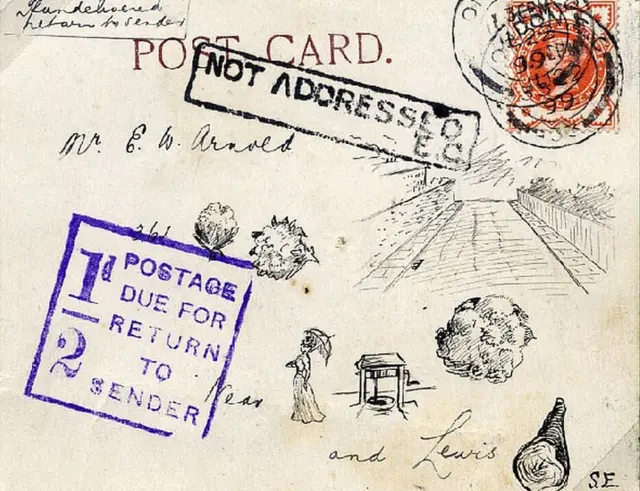 return to sender
POST CARD.
NOT ADDRESSED
E.C.
Mr E. W. Arnold
1d/2 POSTAGE
DUE FOR
RETURN
TO
SENDER
Near
and Lewis
S.E